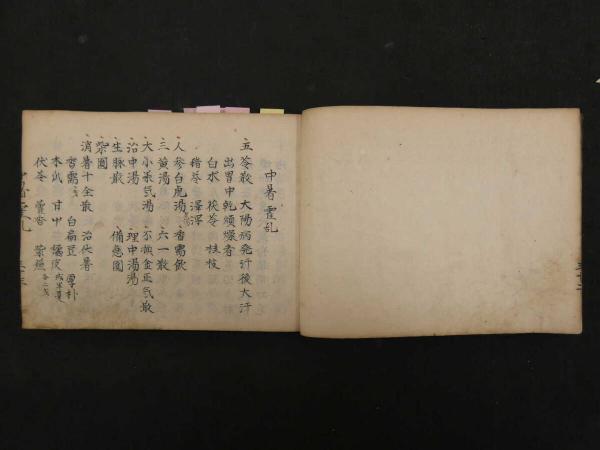 中暑霍乱
五苓散 太陽病発汗後大汗
出胃中乾煩燥者
白朮 茯苓 桂枝
猪苓 澤瀉
人参白虎湯 香薷飲
三黄湯 六一散
大小承気湯 不換金正気散
治中湯 理中湯
生脉散 備急圓
紫圓
消暑十全散 治伏暑
香薷 白扁豆 厚朴
本瓜 甘中 陳皮
茯苓 藿香 紫蘓 各二戔